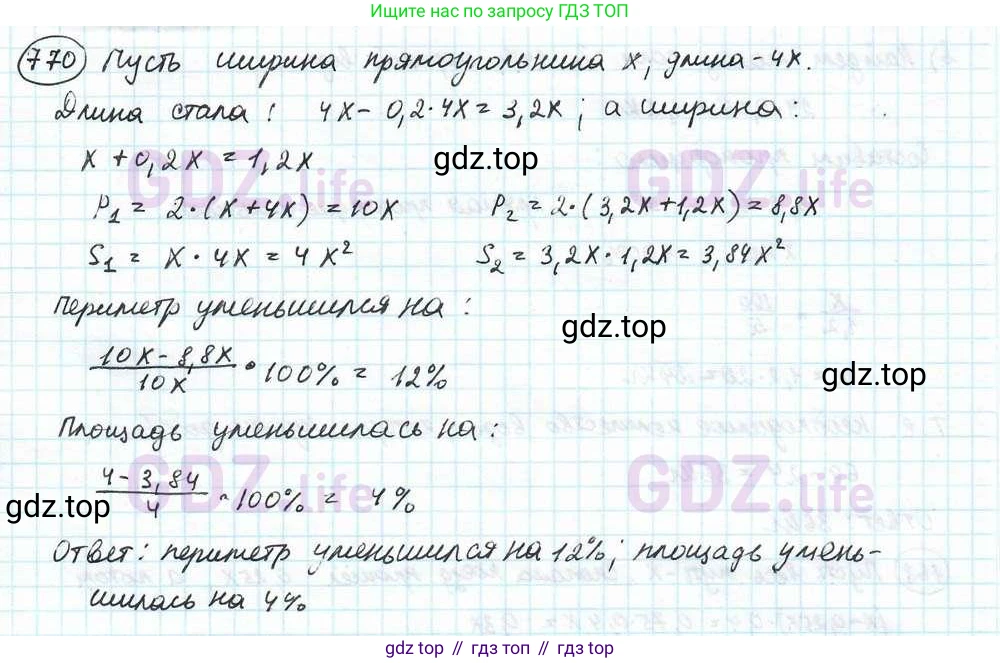 Ищите нас по запросу ГДЗ ТОП
770 Пусть ширина прямоугольника x, длина - 4x.
Длина стала: 4x - 0,2·4x = 3,2x; а ширина:
x + 0,2x = 1,2x
gdz.top
GDZ.life GDZ.life
P₁ = 2·(x+4x) = 10x P₂ = 2·(3,2x+1,2x) = 8,8x
S₁ = x·4x = 4x² S₂ = 3,2x·1,2x = 3,84x²
Периметр уменьшился на:
gdz.top
(10x - 8,8x)/10x · 100% = 12%
gdz.top
Площадь уменьшилась на:
GDZ.life GDZ.life
(4 - 3,84)/4 · 100% = 4%
gdz.top
Ответ: периметр уменьшился на 12%; площадь умень-
шилась на 4%
gdz.top // гдз.топ // gdz.top // гдз.топ